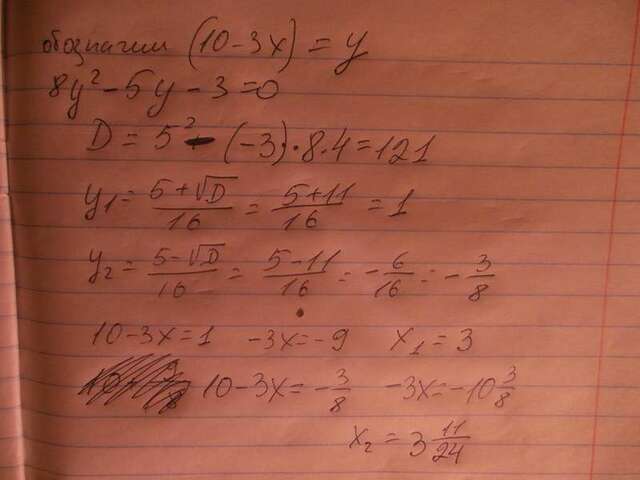 обозначим (10-3x) = y
8y² - 5y - 3 = 0
D = 5² - (-3)·8·4 = 121
y₁ = (5+√D)/16 = (5+11)/16 = 1
y₂ = (5-√D)/16 = (5-11)/16 = -6/16 = -3/8
10-3x=1 -3x=-9 x₁=3
10-3x=-3/8 -3x=-10 3/8
x₂ = 3 11/24